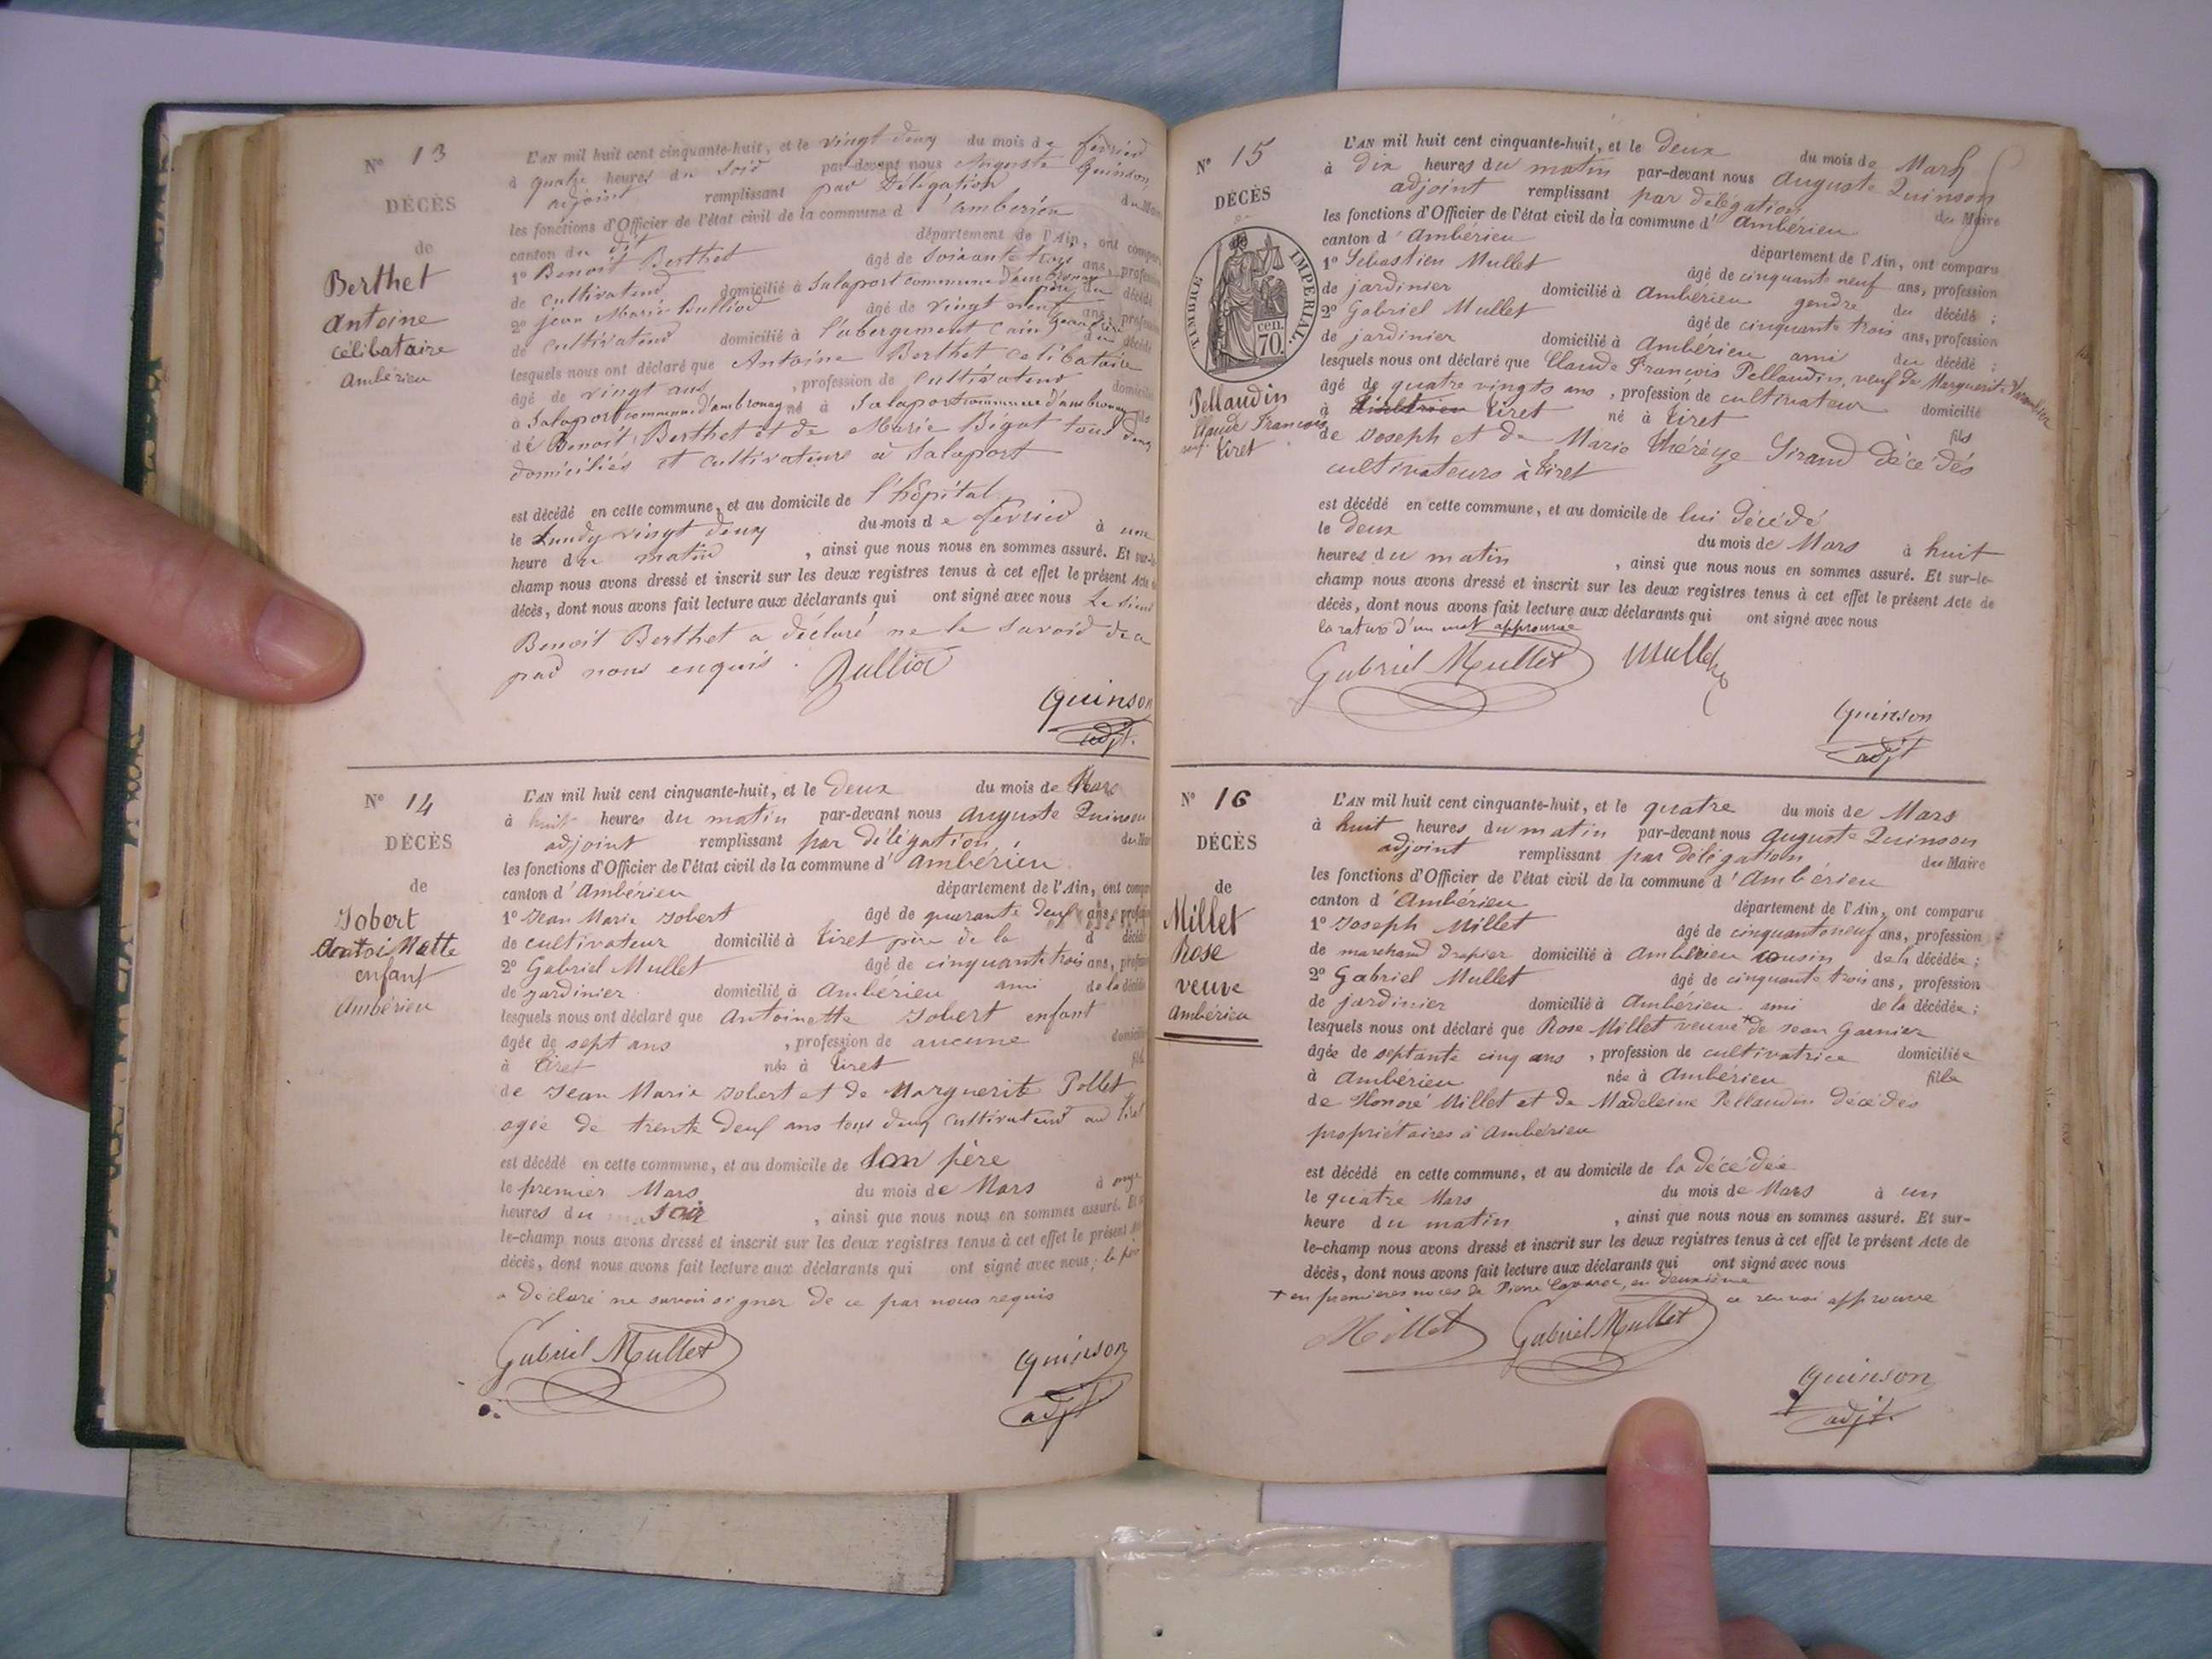 N° 13
DÉCÈS
de
Berthet
Antoine
célibataire
Ambérieu
L'AN mil huit cent cinquante-huit, et le vingt deux du mois de février
à quatre heures du soir par-devant nous Auguste Quinson,
adjoint remplissant par Délégation du Maire
les fonctions d'Officier de l'état civil de la commune d'ambérieu
canton du dit département de l'Ain, ont comparu
1° Benoit Berthet âgé de soixante trois ans, profession
de cultivateur domicilié à Salaport commune d'ambronay père du décédé
2° jean Marie Bulliod âgé de vingt neuf ans, profession
de cultivateur domicilié à l'abergement du décédé
lesquels nous ont déclaré que Antoine Berthet célibataire
âgé de vingt ans, profession de cultivateur domicilié
à Salaport commune d'ambronay né à Salaport commune d'ambronay fils
de Benoit Berthet et de Marie Bigot tous deux
domiciliés et cultivateurs à Salaport
est décédé en cette commune, et au domicile de l'hôpital
le Lundy vingt deux du mois de février à une
heure du matin, ainsi que nous nous en sommes assuré. Et sur-le-
champ nous avons dressé et inscrit sur les deux registres tenus à cet effet le présent Acte de
décès, dont nous avons fait lecture aux déclarants qui ont signé avec nous Le Sieur
Benoit Berthet a déclaré ne le savoir de a
par nous enquis.
Bulliod
Quinson
adjt.
N° 14
DÉCÈS
de
Jobert
Antoinette
enfant
Ambérieu
L'AN mil huit cent cinquante-huit, et le deux du mois de Mars
à huit heures du matin par-devant nous Auguste Quinson
adjoint remplissant par délégation du Maire
les fonctions d'Officier de l'état civil de la commune d'Ambérieu
canton d'Ambérieu département de l'Ain, ont comparu
1° Jean Marie Jobert âgé de quarante deux ans, profession
de cultivateur domicilié à Tiret père de la d décédé
2° Gabriel Mullet âgé de cinquante trois ans, profession
de jardinier domicilié à Ambérieu ami de la décédée
lesquels nous ont déclaré que Antoinette Jobert enfant
âgée de sept ans, profession de aucune domiciliée
à Tiret née à Tiret fille
de Jean Marie Jobert et de Marguerite Pollet
agée de trente deux ans tous deux cultivateurs au Tiret
est décédé en cette commune, et au domicile de Son père
le premier Mars du mois de Mars à onze
heures du soir, ainsi que nous nous en sommes assuré. Et sur-
le-champ nous avons dressé et inscrit sur les deux registres tenus à cet effet le présent Acte de
décès, dont nous avons fait lecture aux déclarants qui ont signé avec nous; le père
a déclaré ne savoir signer de ce par nous requis
Gabriel Mullet
Quinson
adjt.
N° 15
DÉCÈS
de
TIMBRE IMPERIAL
70 cen.
Pellaudin
Claude Francois
veuf Tiret
L'AN mil huit cent cinquante-huit, et le deux du mois de Mars
à dix heures du matin par-devant nous Auguste Quinson
adjoint remplissant par délégation du Maire
les fonctions d'Officier de l'état civil de la commune d'Ambérieu
canton d'Ambérieu département de l'Ain, ont comparu
1° Sebastien Mullet âgé de cinquante neuf ans, profession
de jardinier domicilié à Ambérieu gendre du décédé;
2° Gabriel Mullet âgé de cinquante trois ans, profession
de jardinier domicilié à Ambérieu ami du décédé;
lesquels nous ont déclaré que Claude François Pellaudin, veuf de Marguerite
âgé de quatre vingts ans, profession de cultivateur domicilié
à Tiret né à Tiret fils
de Joseph et de Marie Thérèse Sirand décédés
cultivateurs à Tiret
est décédé en cette commune, et au domicile de lui décédé
le deux du mois de Mars à huit
heures du matin, ainsi que nous nous en sommes assuré. Et sur-le-
champ nous avons dressé et inscrit sur les deux registres tenus à cet effet le présent Acte de
décès, dont nous avons fait lecture aux déclarants qui ont signé avec nous
la rature d'un mot approuvée
Gabriel Mullet Mullet
Quinson
adjt
N° 16
DÉCÈS
de
Millet
Rose
veuve
Ambérieu
L'AN mil huit cent cinquante-huit, et le quatre du mois de Mars
à huit heures du matin par-devant nous Auguste Quinson
adjoint remplissant par délégation du Maire
les fonctions d'Officier de l'état civil de la commune d'Ambérieu
canton d'Ambérieu département de l'Ain, ont comparu
1° Joseph Millet âgé de cinquante neuf ans, profession
de marchand drapier domicilié à Ambérieu cousin de la décédée;
2° Gabriel Mullet âgé de cinquante trois ans, profession
de jardinier domicilié à Ambérieu ami de la décédée;
lesquels nous ont déclaré que Rose Millet veuve + de Jean Garnier
âgée de septante cinq ans, profession de cultivatrice domiciliée
à Ambérieu née à Ambérieu fille
de Honoré Millet et de Madeleine Pellaudin décédés
propriétaires à Ambérieu
est décédé en cette commune, et au domicile de la décédée
le quatre Mars du mois de Mars à un
heure du matin, ainsi que nous nous en sommes assuré. Et sur-
le-champ nous avons dressé et inscrit sur les deux registres tenus à cet effet le présent Acte de
décès, dont nous avons fait lecture aux déclarants qui ont signé avec nous
+ en premieres noces de Pierre en deuxième
ce renvoi approuvé
Millet Gabriel Mullet
Quinson
adjt.